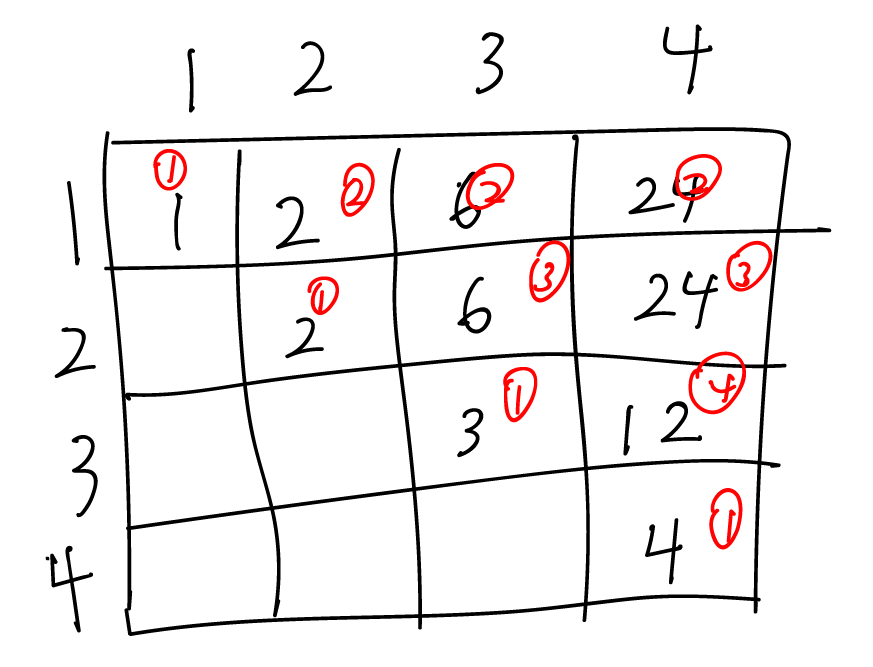 1 2 3 4
1 1 ① 2 ② 6 ② 24 ②
2 2 ① 6 ③ 24 ③
3 3 ① 12 ④
4 4 ①